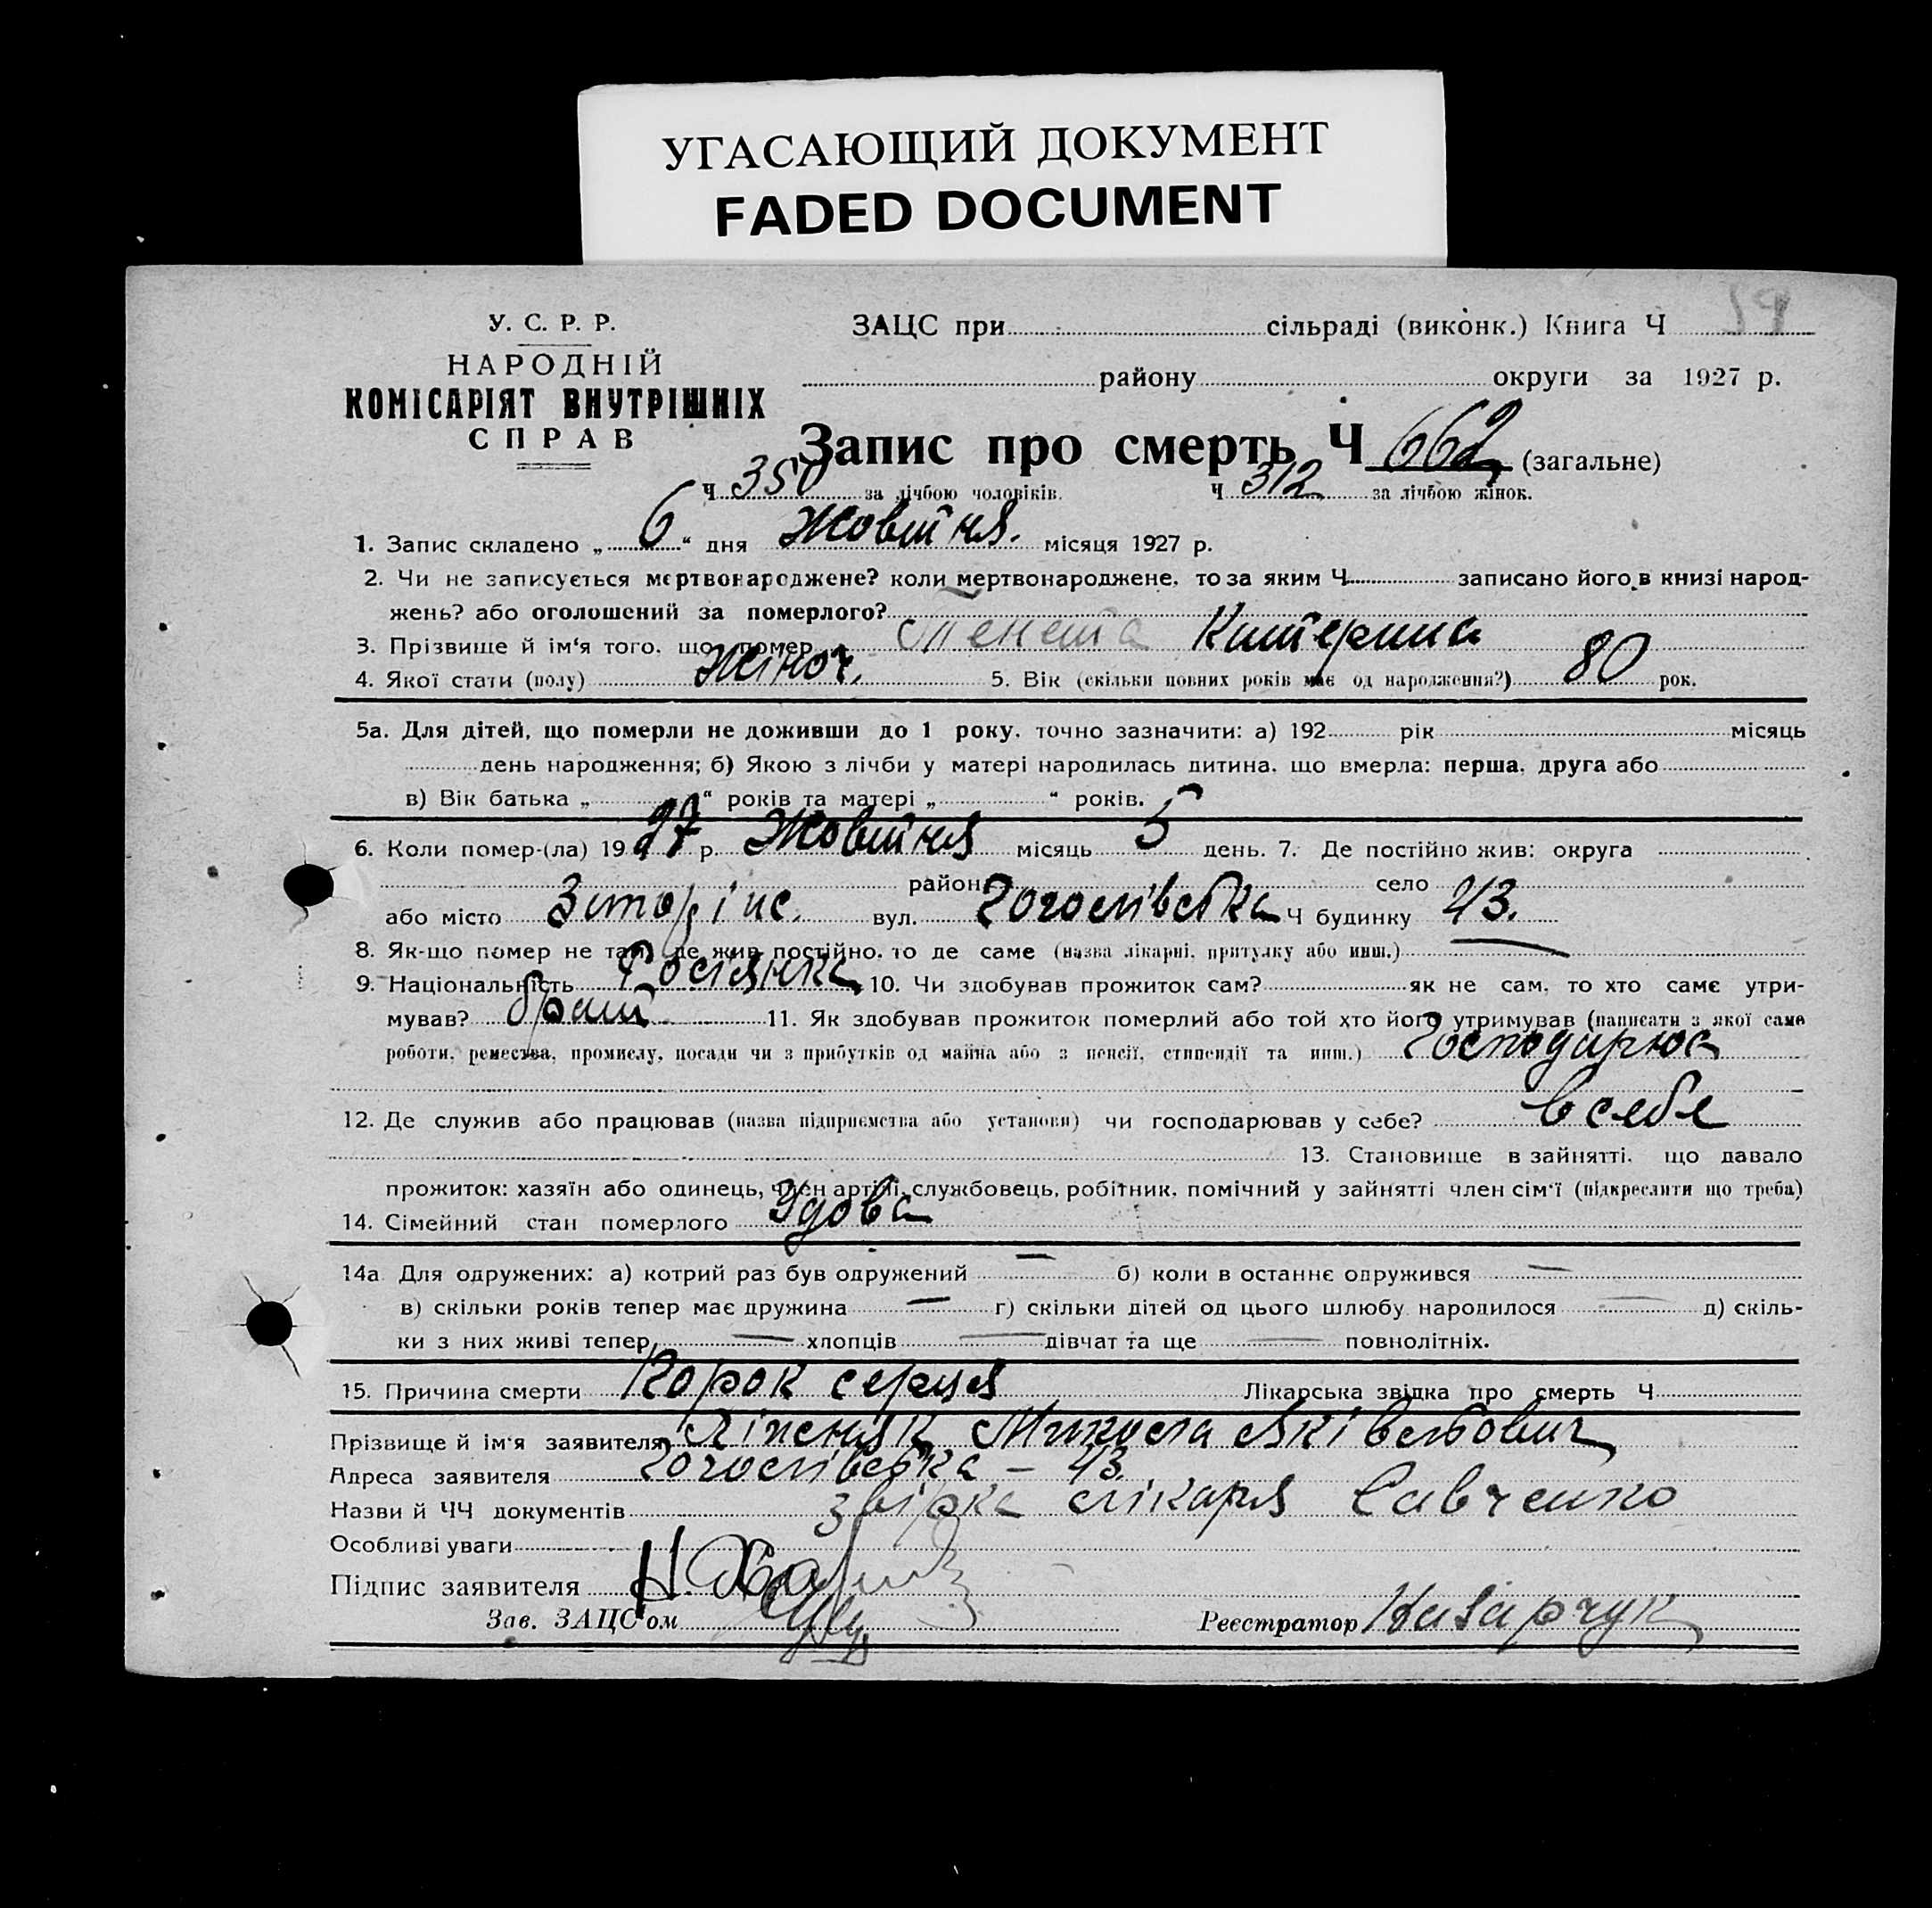 УГАСАЮЩИЙ ДОКУМЕНТ
FADED DOCUMENT
У. С. Р. Р.
НАРОДНІЙ
КОМІСАРІЯТ ВНУТРІШНІХ
СПРАВ
ЗАЦС при сільраді (виконк.) Книга Ч
району округи за 1927 р.
Запис про смерть Ч 662 (загальне)
Ч 350 за лічбою чоловіків. Ч 312 за лічбою жінок.
1. Запис складено „ 6 “ дня Жовтня. місяця 1927 р.
2. Чи не записується мертвонароджене? коли мертвонароджене, то за яким Ч записано його в книзі народ-
жень? або оголошений за померлого?
3. Прізвище й ім‘я того, що помер Катерина
4. Якої стати (полу) жіноч. 5. Вік (скільки повних років має од народження?) 80 рок.
5а. Для дітей, що померли не доживши до 1 року, точно зазначити: а) 192 рік місяць
день народження; б) Якою з лічби у матері народилась дитина, що вмерла: перша, друга або
в) Вік батька „ “ років та матері „ “ років.
6. Коли помер-(ла) 19 27 р. Жовтня місяць 5 день. 7. Де постійно жив: округа
район село
або місто вул. Гоголівська Ч будинку 43.
8. Як-що помер не там, де жив постійно, то де саме (назва лікарні, притулку або инш.) —
9. Національність Росіянка 10. Чи здобував прожиток сам? як не сам, то хто саме утри-
мував? брат 11. Як здобував прожиток померлий або той хто його утримував (написати з якої саме
роботи, ремества, промислу, посади чи з прибутків од майна або з пенсії, стипендії та инш.)
12. Де служив або працював (назва підприємства або установи) чи господарював у себе? в себе
13. Становище в зайнятті, що давало
прожиток: хазяїн або одинець, член артілі, службовець, робітник, помічний у зайнятті член сім‘ї (підкреслити що треба)
14. Сімейний стан померлого Удова
14а Для одружених: а) котрий раз був одружений — б) коли в останнє одружився —
в) скільки років тепер має дружина — г) скільки дітей од цього шлюбу народилося — д) скіль-
ки з них живі тепер, — хлопців — дівчат та ще — повнолітніх.
15. Причина смерти Порок серця Лікарська звідка про смерть Ч
Прізвище й ім‘я заявителя Микола
Адреса заявителя Гоголівська — 43.
Назви й ЧЧ документів лікаря Савченко
Особливі уваги
Підпис заявителя
Зав. ЗАЦС‘ом
Реєстратор